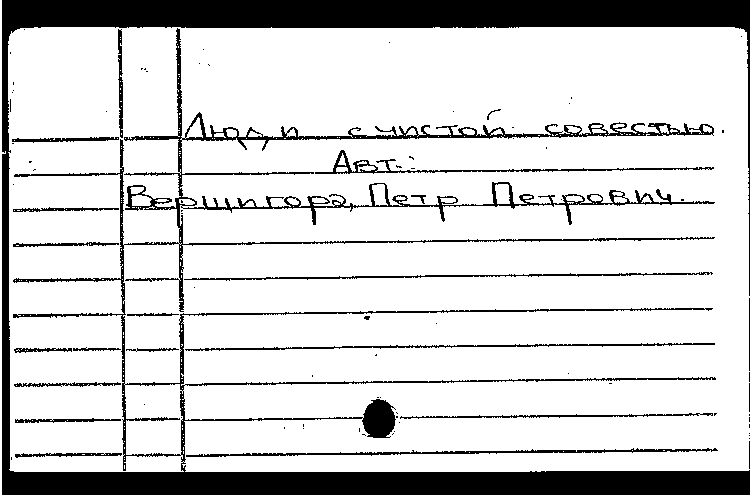 Люди с чистой совестью.
Авт.:
Вершигора, Петр Петрович.